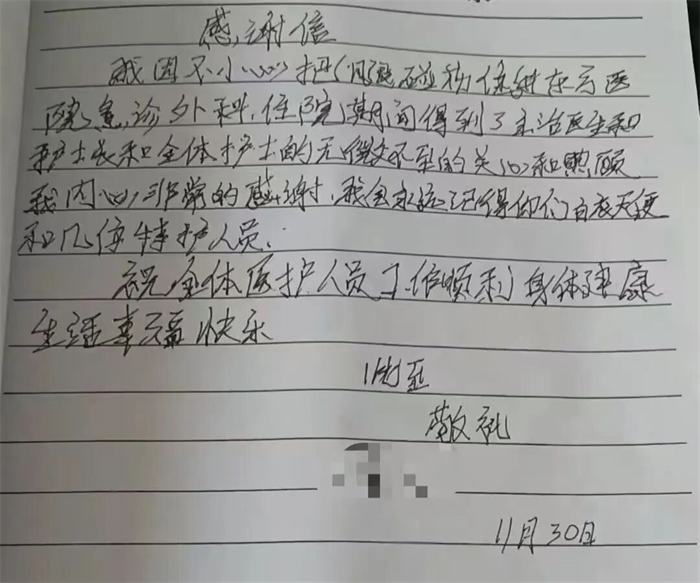 感谢信
我因不小心把 碰 住 在 医
院急诊外科，住院期间得到了主治医生和
护士长和全体护士的无微不至的关心和照顾
我内心非常的感谢，我会永远记得你们白衣天使
和几位特护人员.
祝全体医护人员工作顺利身体健康
生活幸福快乐
此至
敬礼
11月30日